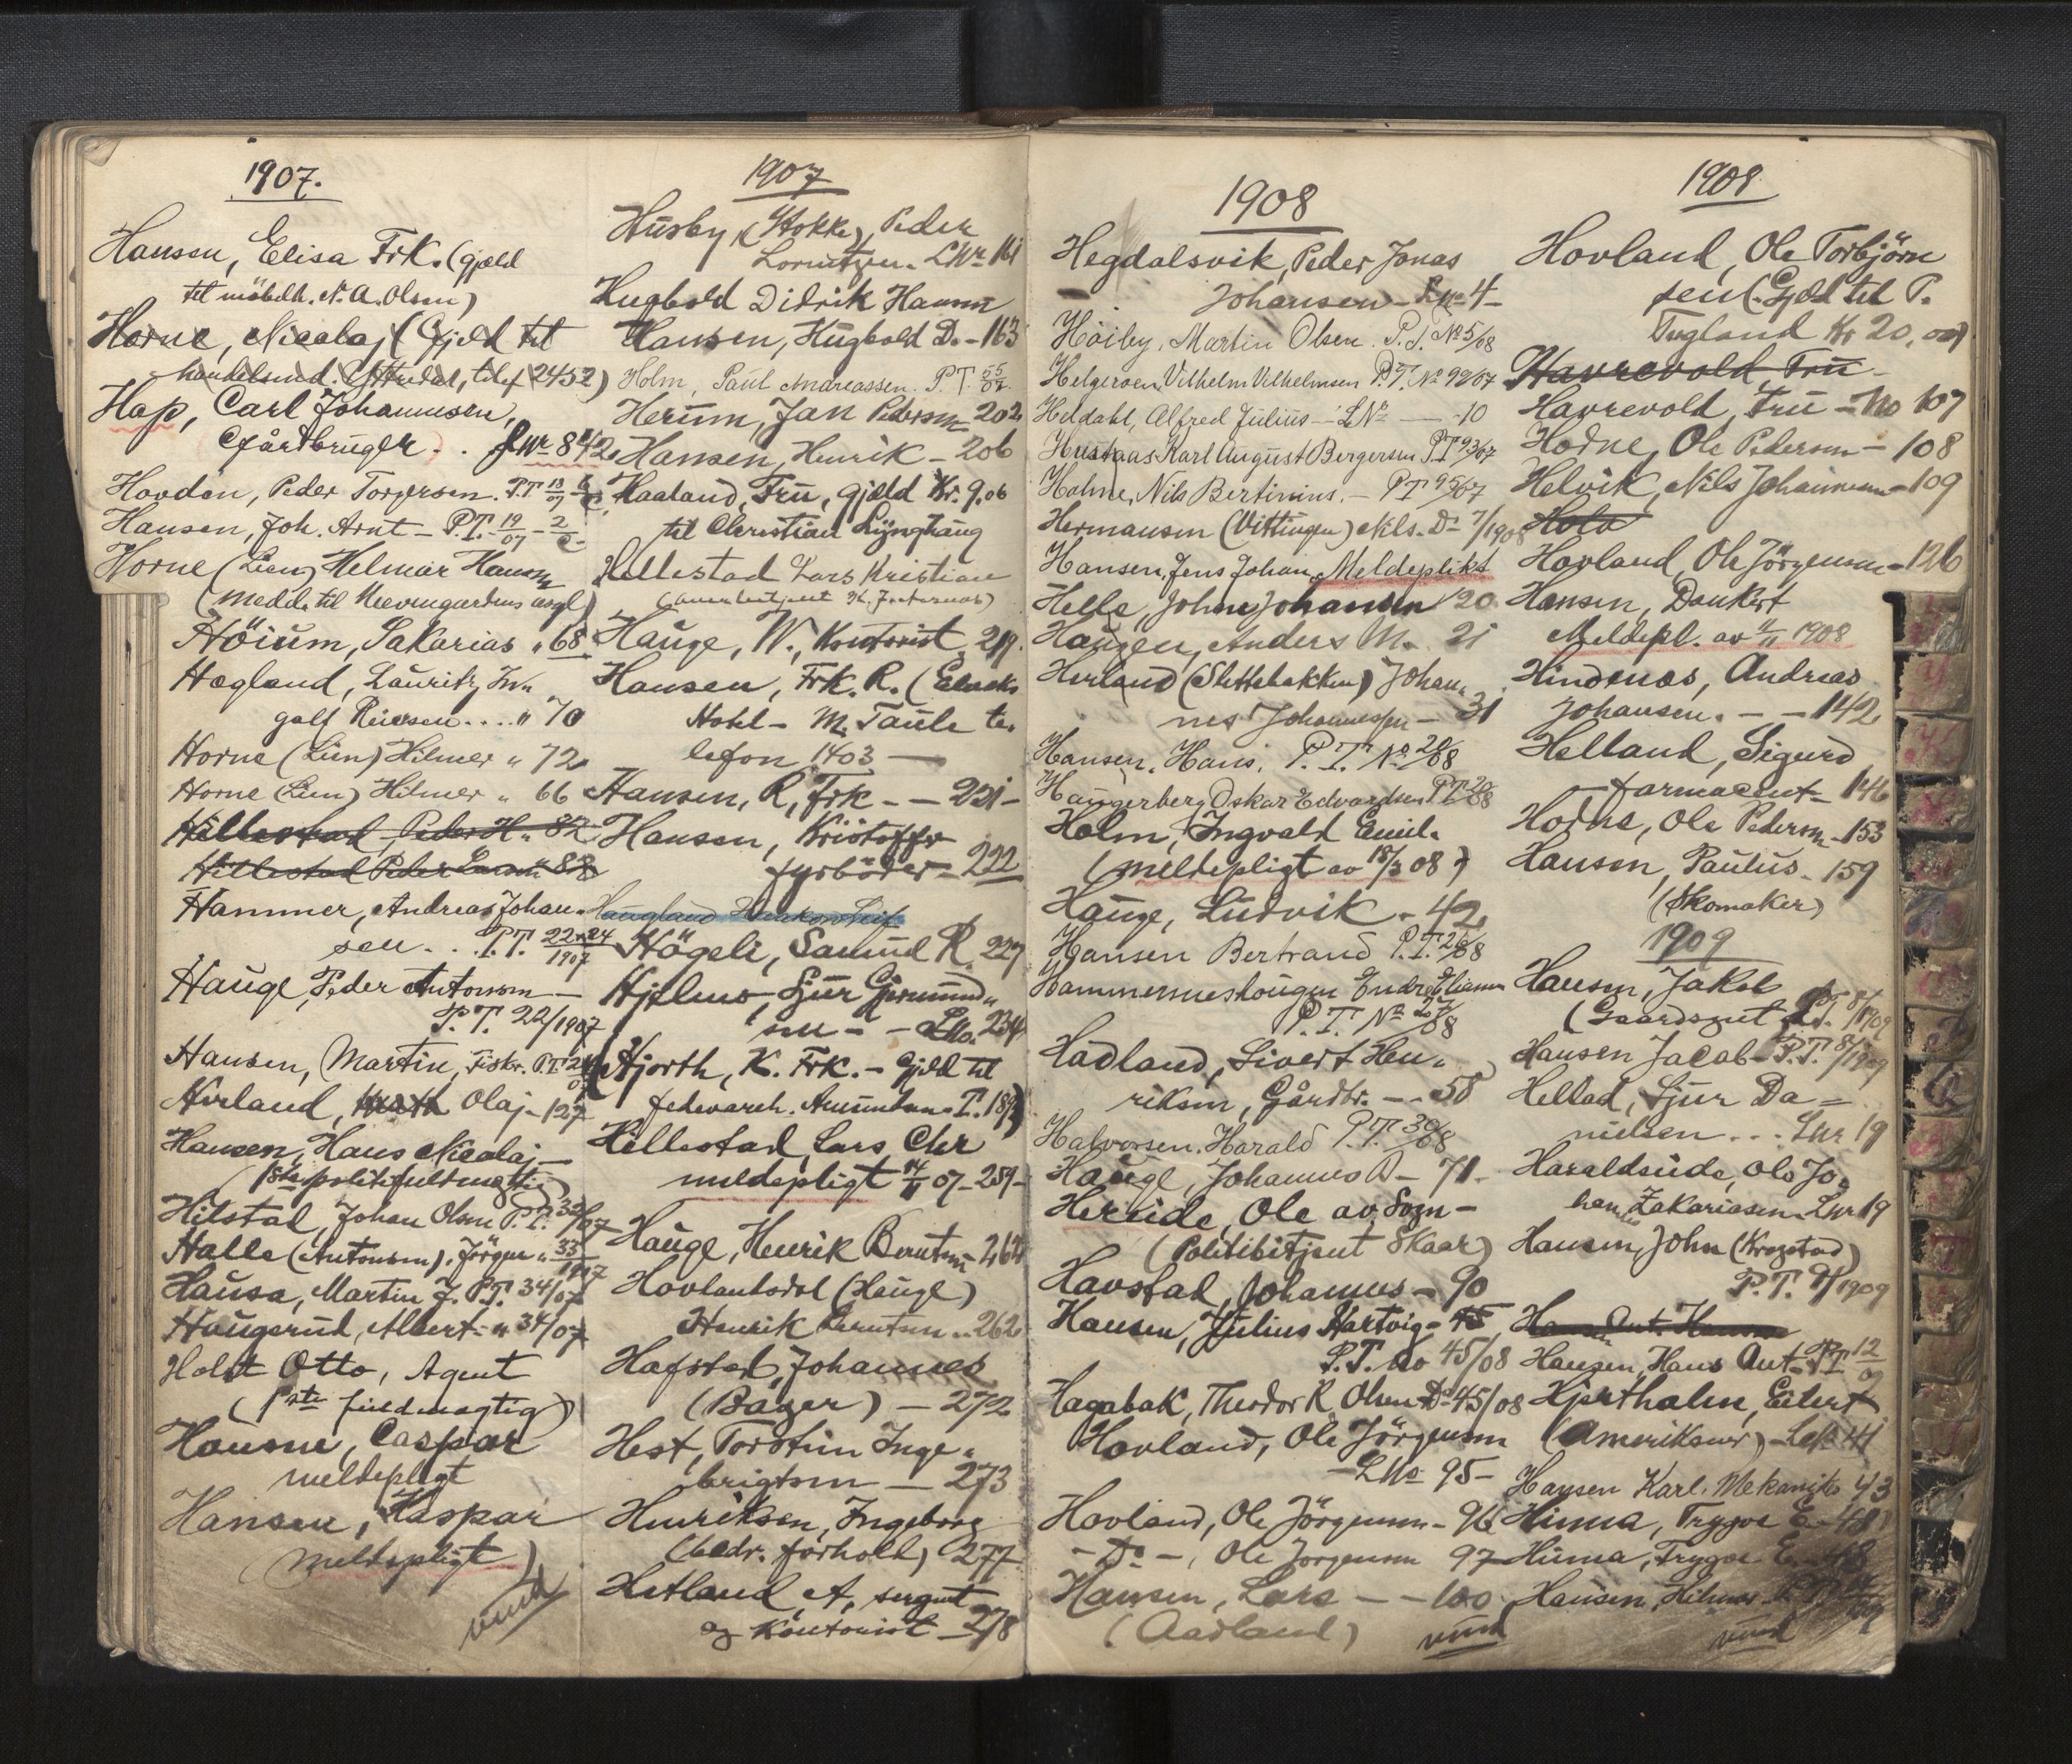 1907.
Hansen, Elisa Frk. (gjæld
til möbelh. N. A. Olsen)
Horne, Nicolaj (Gjæld til
handelsmd. Eftredal, telef 2452)
Hop, Carl Johannesen,
Gårdbruger. . Lnr 842
Hovden, Peder Torgersen. P.T. 13/07
Hansen, Joh. Arnt – P.T. 19/07 – 2
Horne (Lien) Helmar Hansen
(Medd. til Neevengaardens asyl)
Höium, Sakarias " 68
Hogland, Lauritz In-
golf Reiersen.... " 70
Horne (Lien) Hilmer " 72
Horne (Lien) Hilmer " 66
Hillestad, Peder H. " 82
Hillestad Peder Larsen 88
Hammer, Andreas Johan-
sen. . . P.T. 22+24/1907
Hauge, Peder Antonsen –
P.T. 22/1907
Hansen, Martin, Fisker. P.T.
Olaj – 127
Hansen, Hans Nicolaj –
(1ste politifuldmægtig)
Hilstad, Johan Olsen P.T. 32/07
Halle (Antonsen), Jörgen " 33/1907
Hausa, Martin J. P.T. 34/07
Haugerud, Albert – " 34/07
Holst Otto, Agent
(1ste fuldmægtig)
Hansen, Caspar
meldepligt
Hansen, Kaspar
(meldepligt)
vend
1907
Husby (Stokke), Peder
Lorentzen. LNr 161
Hugbold Didrik Hansen
Hansen, Hugbold D. – 163
Holm, Paul Andreassen. P.T. 55/07
Herum, Jan Pedersen 202
Hansen, Henrik – 206
Haaland, Fru, gjæld Kr. 9.06
til Christian Lynghaug
Hillestad Lars Kristian
Hauge, W., Kontorist 219.
Hansen, Frk. R. (
Hotel – M. Taule te-
lefon 1403 —
Hansen, R, Frk – – 221 –
Hansen, Kristoffer
fyrböder – 222
Haugland Haakon Leif
Högeli, Samuel R. 227
Hjelmo, Sjur Gjermund-
sen – – LNo. 234
Hjorth, K. Frk. – Gjæld til
fedevareh. Amundsen T. 189)
Hillestad, Lars Chr
meldepligt 14/11 07 – 259 –
Hauge, Henrik Berntsen – 262
Hovlandsdal (Hauge)
Henrik Berntsen .. 262
Hafstad, Johannes
(Bager) – 272
Hest, Torstein Inge-
brigtsen – 273
Henriksen, Ingeborg
(bedr. forhold) 277
Hetland, A, sergent
og Kontorist – 278
1908
Hegdalsvik, Peder Jonas
Johansen – LNo 4 –
Höiby, Martin Olsen. P.T. No 5/08
Helgeroen, Vilhelm Vilhelmsen P.T. No 99/07
Heldahl, Alfred Julius – LNr — 10
Hustaas Karl August Bergersen P.T 93/07
Holme, Nils Bertinius. – P T 95/07
Hermansen (Vittingen) Nils. Do 7/1908
Hansen, Jens Johan, Meldeplikt
Helle, Johan Johansen 20.
Haugen, Anders M. 21
Herland (Slettebakken) Johan-
nes Johannessen – 31
Hansen, Hans, P.T. No 20/08
Haugerberg Oskar Edvardsen P.T 20/08
Holm, Ingvald Emil.
(meldepligt av 18/3 08)
Hauge, Ludvik – 42
Hansen Bertrand P.T. 26/08
Hammerneshougen Endre Eliassen
P.T. No 27/08
Hadland, Sivert Hen-
riksen, Gårdbr. – – 58
Halvorsen, Harald P.T. 30/08
Hauge, Johannes A – 71.
Hereide, Ole av Sogn –
(Politibetjent Skaar)
Havstad, Johannes – 90
Hansen, Julius Hartvig – 45
P.T. No 45/08
Hagabak, Theodor R. Olsen Do 45/08
Hovland, Ole Jörgensen
– LNo 95 –
Hovland, Ole Jörgensen – 96
– Do –, Ole Jorgensen 97
Hansen, Lars – – 100
(Aadland)
vend
1908
Hovland, Ole Torbjörn
sen (Gjæld til P.
Tugland Kr 20,00)
Havrevold, Fru –
Havrevold, Fru – No 107
Hodne, Ole Pedersen – 108
Helvik, Nils Johannesen – 109
Holo
Hovland, Ole Jörgensen – 126
Hansen, Dankert
Meldepl. av 11/11 1908
Hindenæs, Andreas
Johansen. – – 142
Helland, Sigurd
– farmaceut – 146
Hodne, Ole Pedersen – 153
Hansen, Paulus – 159
(Skomaker)
1909
Hansen, Jakob
(Gaardsgut P.T. 8/1909
Hansen Jacob – P.T. 8/1909
Hellad, Sjur Da =
nielsen . . . Lnr 19
Haraldseide, Ole Jo-
hannes Zakariasen. Lnr 19
Hansen, John (Krogstad)
P.T. 9/1909
Hans Ant. Hansen
Hansen, Hans Ant – PT 12/09
Hjertholm, Eilert
(Amerikaner) – Lnr 41
Hansen Karl. Mekaniker 43
Hinna, Trygve E – 48
Hinna, Trygve E. – 48
Hansen, Hilmar P.T.
vend